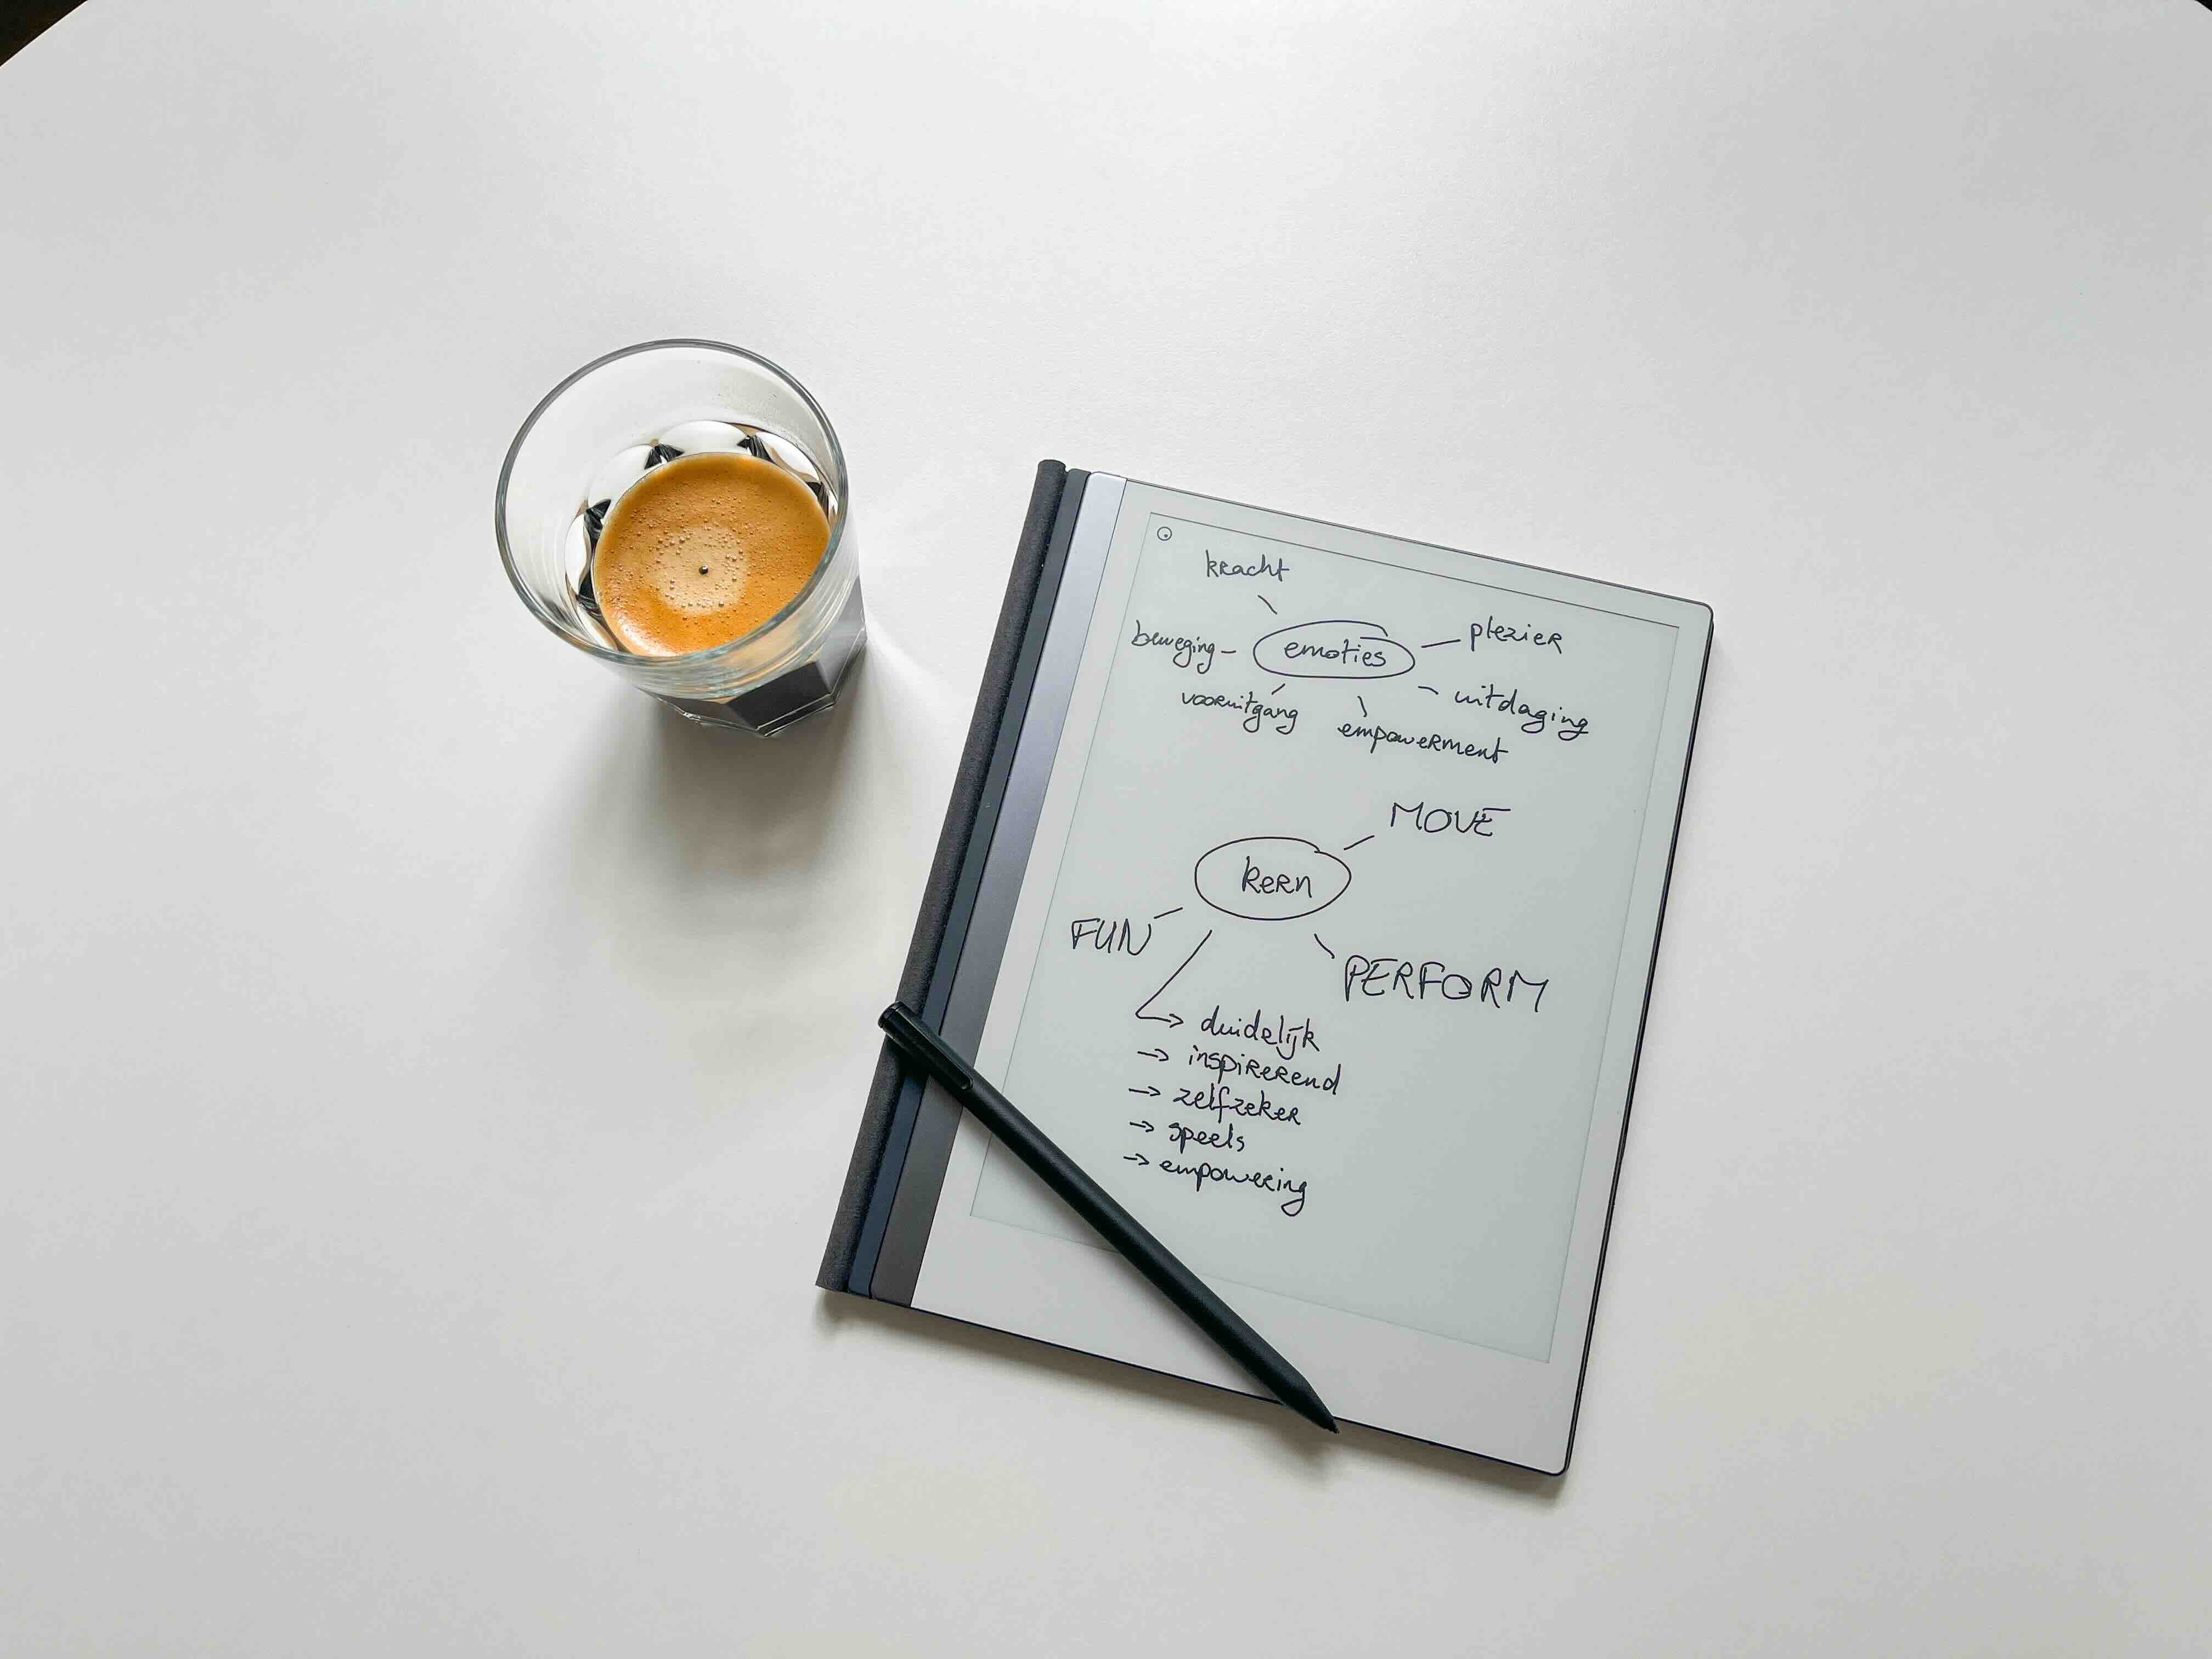 kracht
emoties
plezier
beweging
uitdaging
vooruitgang
empowerment
MOVE
kern
FUN
PERFORM
→ duidelijk
→ inspirerend
→ zelfzeker
→ speels
→ empowering